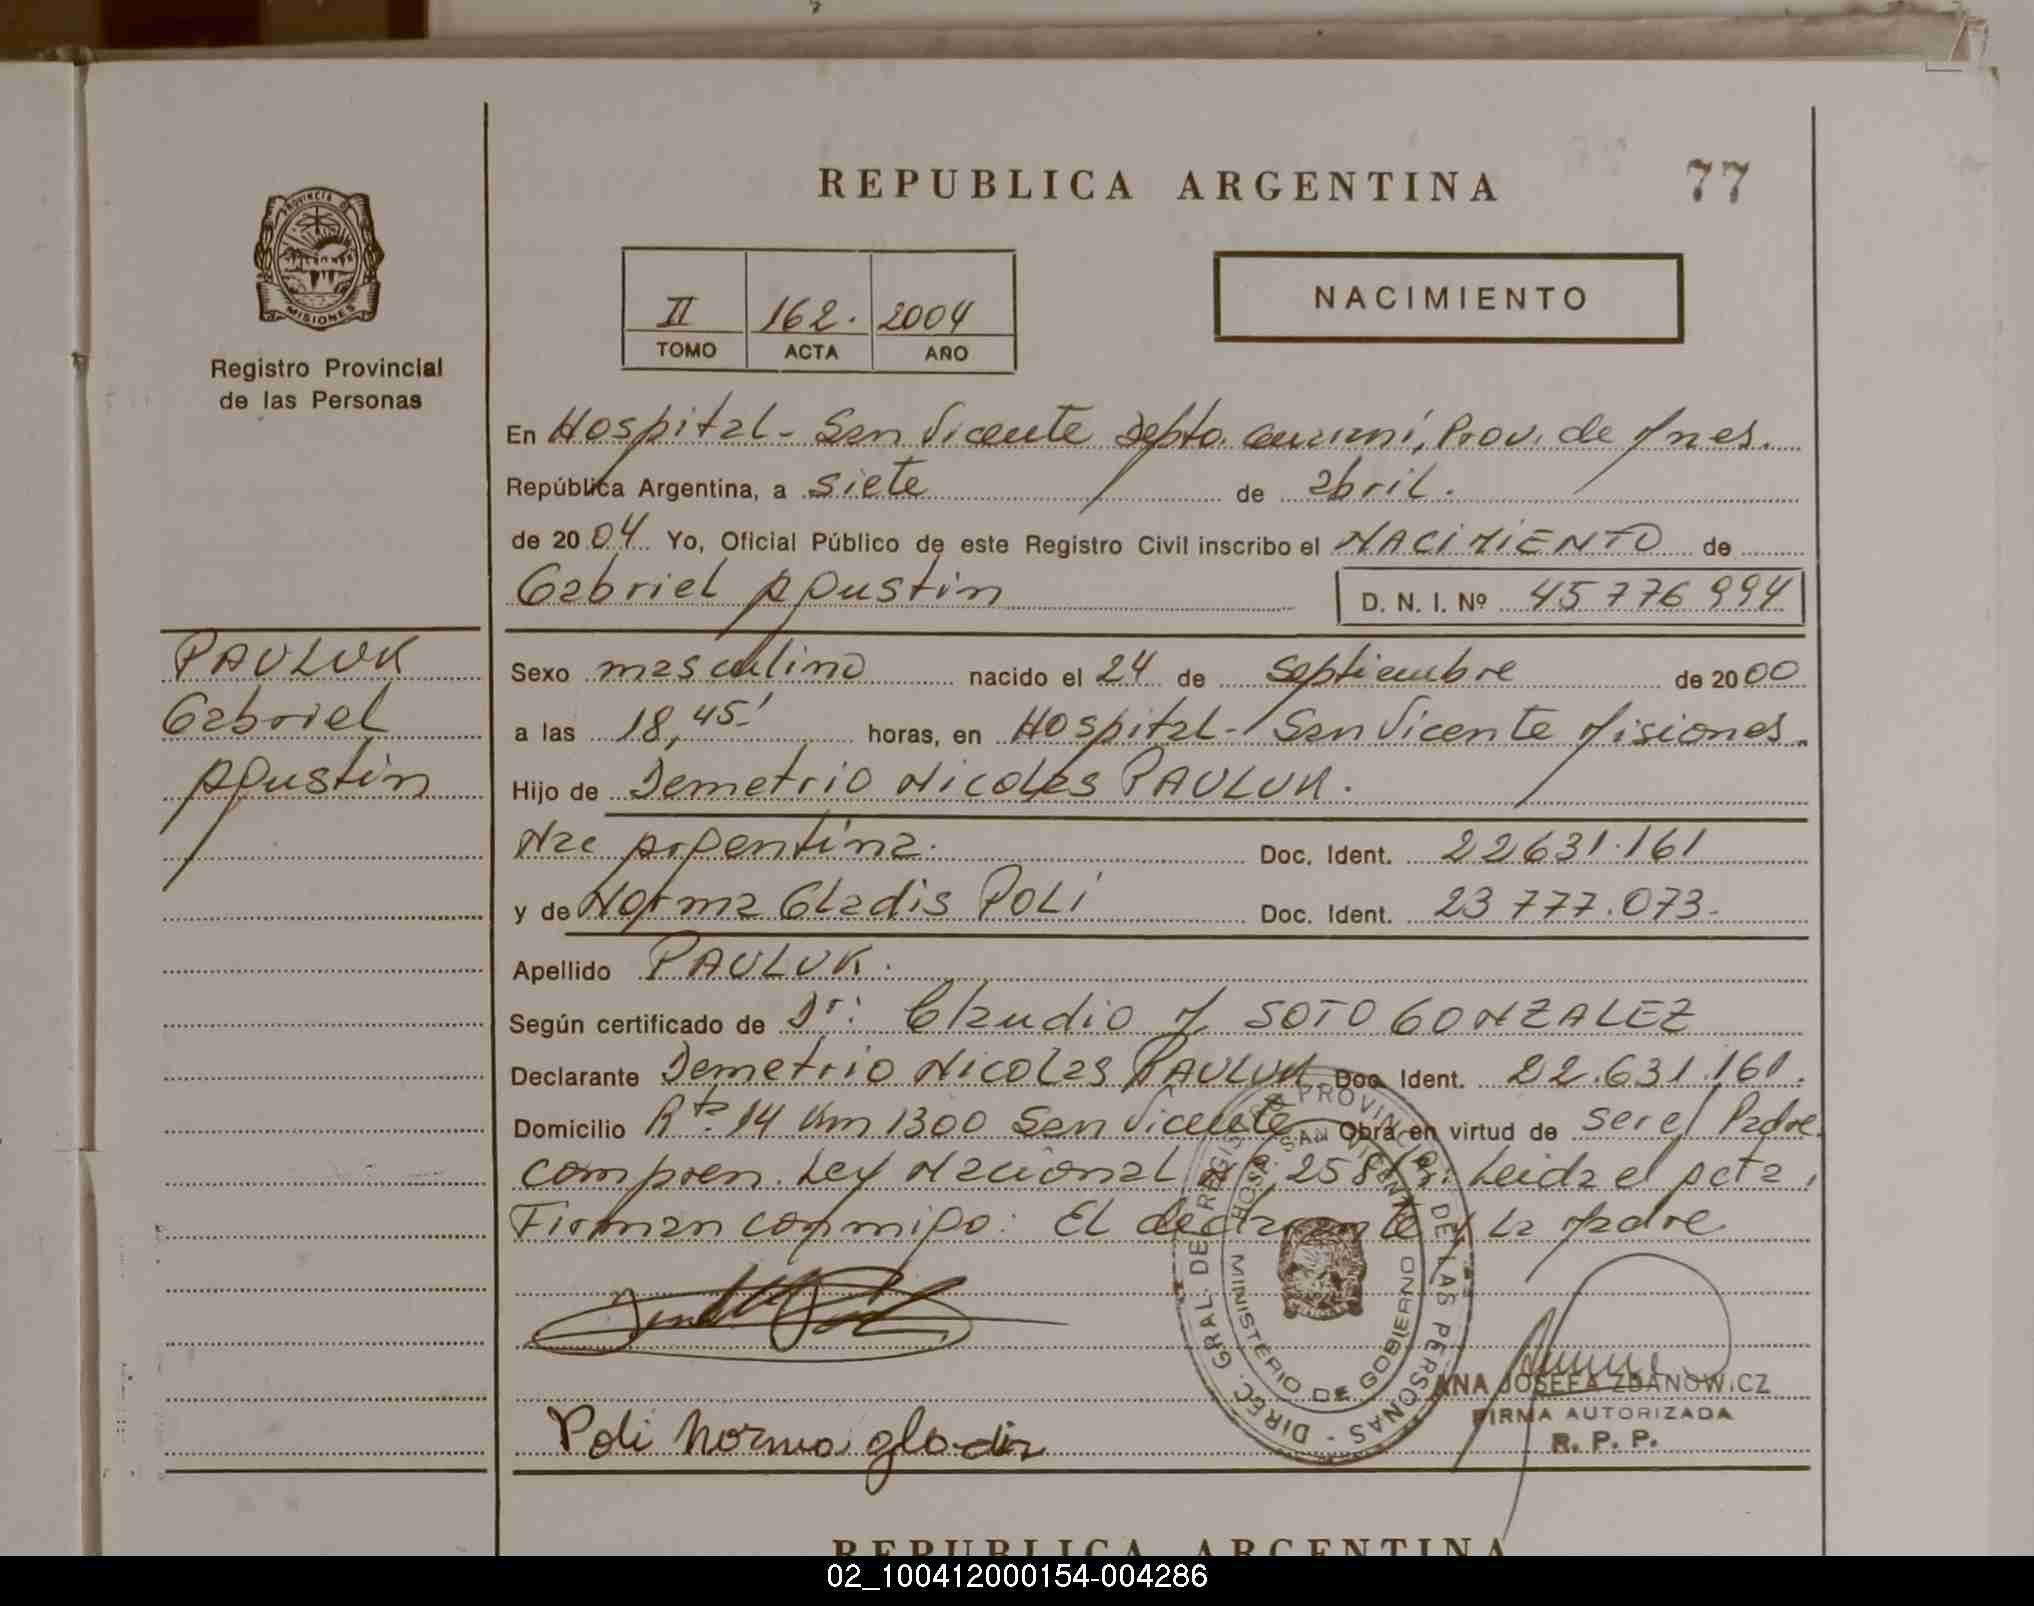 REPUBLICA ARGENTINA
77
PROVINCIA DE
MISIONES
Registro Provincial
de las Personas
II 162. 2004
TOMO ACTA AÑO
NACIMIENTO
En Hospital - San Vicente Depto. Guaraní, Prov. de Mnes.
República Argentina, a siete de abril.
de 2004 Yo, Oficial Público de este Registro Civil inscribo el NACIMIENTO de
Gabriel Agustin
D. N. I. Nº 45776994
PAULUK
Gabriel
Agustin
Sexo masculino nacido el 24 de Septiembre de 2000
a las 18,45' horas, en Hospital - San Vicente Misiones.
Hijo de Demetrio Nicolas PAULUK.
Nac Argentina. Doc. Ident. 22631.161
y de Norma Gladis POLI Doc. Ident. 23777.073.
Apellido PAULUK.
Según certificado de Dr: Claudio M. SOTO GONZALEZ
Declarante Demetrio Nicolas PAULUK Doc. Ident. 22.631.161.
Domicilio Rta. 14 Km 1300 San Vicente Obra en virtud de ser el Padre.
compren. Ley Nacional Leida el Acta,
Firman conmigo: El declarante y La Madre
DIREC. GRAL. DE REGISTRO PROVINCIAL DE LAS PERSONAS -
HOSP. SAN VICENTE
MINISTERIO DE GOBIERNO
ANA JOSEFA ZDANOWICZ
FIRMA AUTORIZADA
R. P. P.
Poli Norma gladis
REPUBLICA ARGENTINA
02_100412000154-004286